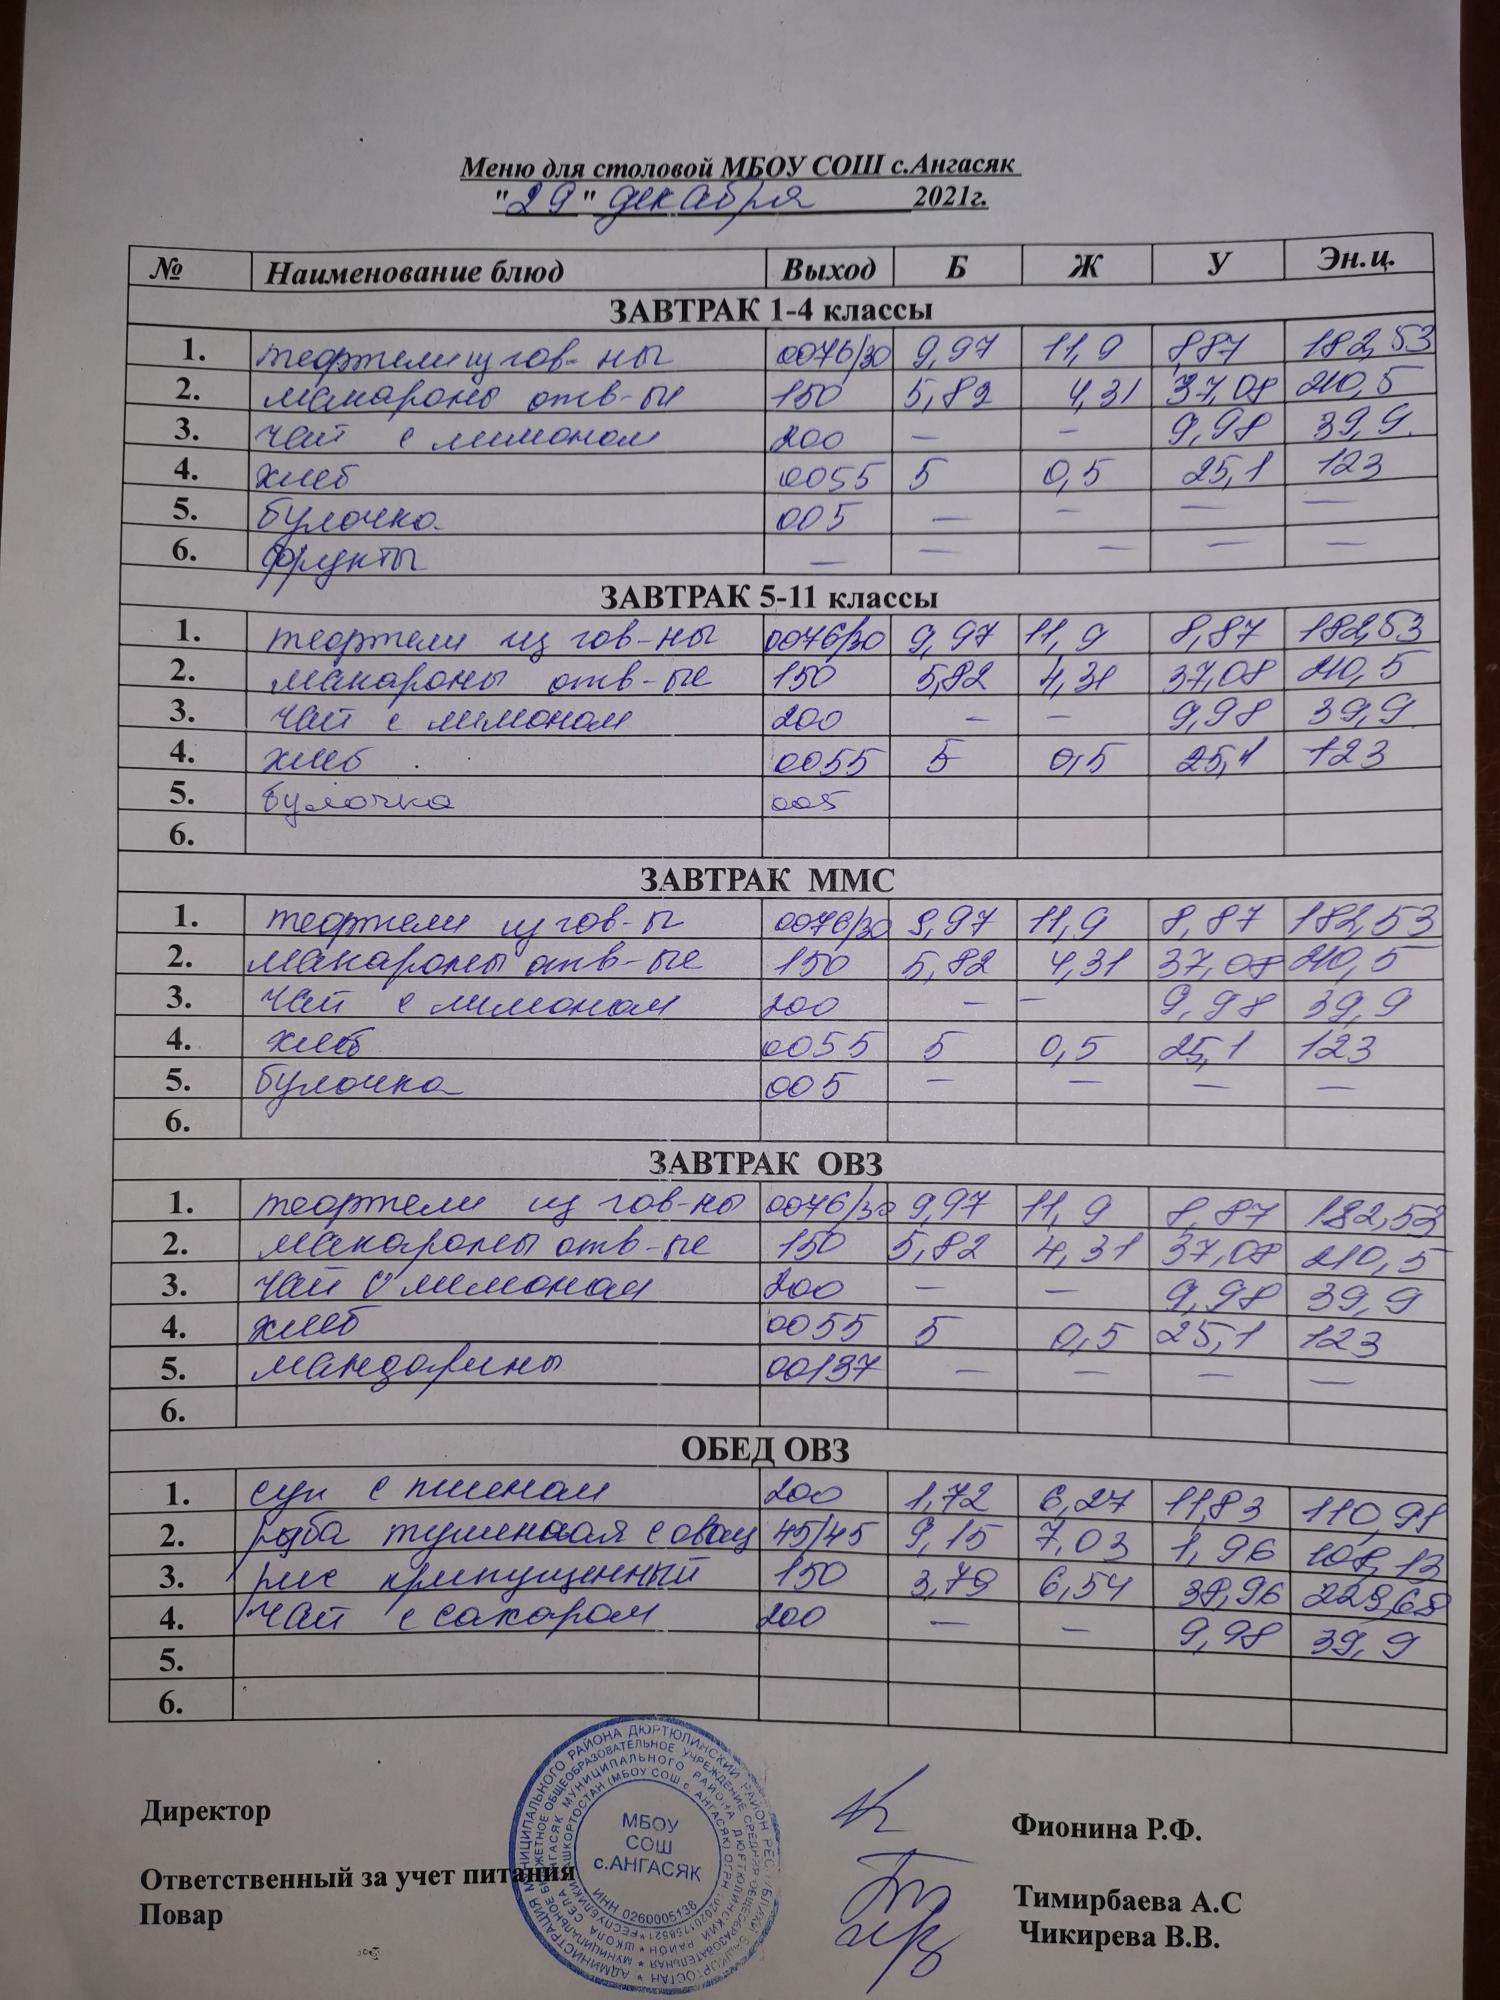 Меню для столовой МБОУ СОШ с.Ангасяк
"29" декабря 2021г.
№ Наименование блюд Выход Б Ж У Эн.ц.
ЗАВТРАК 1-4 классы
1. тефтели из гов-ны 0076/30 9,97 11,9 8,87 182,53
2. макароны отв-ые 150 5,82 4,31 37,08 210,5
3. чай с лимоном 200 — — 9,98 39,9
4. хлеб 0055 5 0,5 25,1 123
5. булочка 005 — — — —
6. фрукты — — — — —
ЗАВТРАК 5-11 классы
1. тефтели из гов-ны 0076/30 9,97 11,9 8,87 182,53
2. макароны отв-ые 150 5,82 4,31 37,08 210,5
3. чай с лимоном 200 — — 9,98 39,9
4. хлеб 0055 5 0,5 25,1 123
5. булочка 005
6.
ЗАВТРАК ММС
1. тефтели из гов-ы 0076/30 9,97 11,9 8,87 182,53
2. макароны отв-ые 150 5,82 4,31 37,08 210,5
3. чай с лимоном 200 — — 9,98 39,9
4. хлеб 0055 5 0,5 25,1 123
5. булочка 005 — — — —
6.
ЗАВТРАК ОВЗ
1. тефтели из гов-ны 0076/30 9,97 11,9 8,87 182,53
2. макароны отв-ые 150 5,82 4,31 37,08 210,5
3. чай с лимоном 200 — — 9,98 39,9
4. хлеб 0055 5 0,5 25,1 123
5. мандарины 00137 — — — —
6.
ОБЕД ОВЗ
1. суп с пшеном 200 1,72 6,27 11,83 110,91
2. рыба тушеная с овощ 45/45 9,15 7,03 1,96 108,13
3. рис припущенный 150 3,79 6,54 38,96 229,68
4. чай с сахаром 200 — — 9,98 39,9
5.
6.
Директор Фионина Р.Ф.
Ответственный за учет питания Тимирбаева А.С
Повар Чикирева В.В.
МБОУ
СОШ
с.АНГАСЯК
ИНН 0260005138